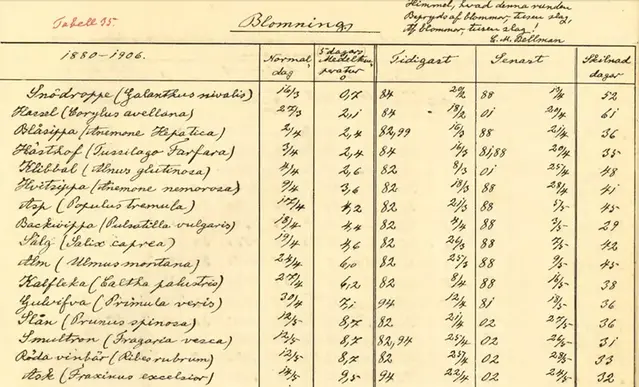 Himmel, hvad denna runden
Tabell 35.
Blomning
Beprydd af blommor, tusen slag,
Af blommor, tusen slag!
C. M. Bellman
1880-1906.
Normaldag
5 dagars Medeltemperatur
Tidigast
Senast
Skilnad dagar
Snödroppe (Galanthus nivalis) 16/3 0,7 84 88 52
Hassel (Corylus avellana) 27/3 2,1 84 18/2 01 61
Blåsippa (Anemone Hepatica) 2/4 2,4 82,99 16/3 88 21/4 36
Hästhof (Tussilago Farfara) 3/4 2,4 84 16/3 81,88 20/4 35
Klibbal (Alnus glutinosa) 4/4 2,6 82 8/3 01 25/4 48
Hvitsippa (Anemone nemorosa) 9/4 3,6 82 18/3 88 28/4 41
Asp (Populus tremula) 17/4 4,2 82 21/3 88 5/5 45
Backsippa (Pulsatilla vulgaris) 18/4 4,4 82 4/4 88 3/5 29
Sälg (Salix caprea) 19/4 4,6 82 26/3 88 7/5 42
Alm (Ulmus montana) 24/4 6,0 82 25/3 88 9/5 45
Kalfleka (Caltha palustris) 27/4 6,2 82 8/4 88 16/5 38
Gullvifva (Primula veris) 30/4 7,1 94 12/4 81 18/5 36
Slån (Prunus spinosa) 12/5 8,7 82 21/4 02 27/5 36
Smultron (Fragaria vesca) 12/5 8,7 82,94 25/4 02 26/5 31
Röda vinbär (Ribes rubrum) 12/5 8,7 82 25/4 02 28/5 33
Ask (Fraxinus excelsior) 14/5 9,5 94 22/4 02 24/5 32